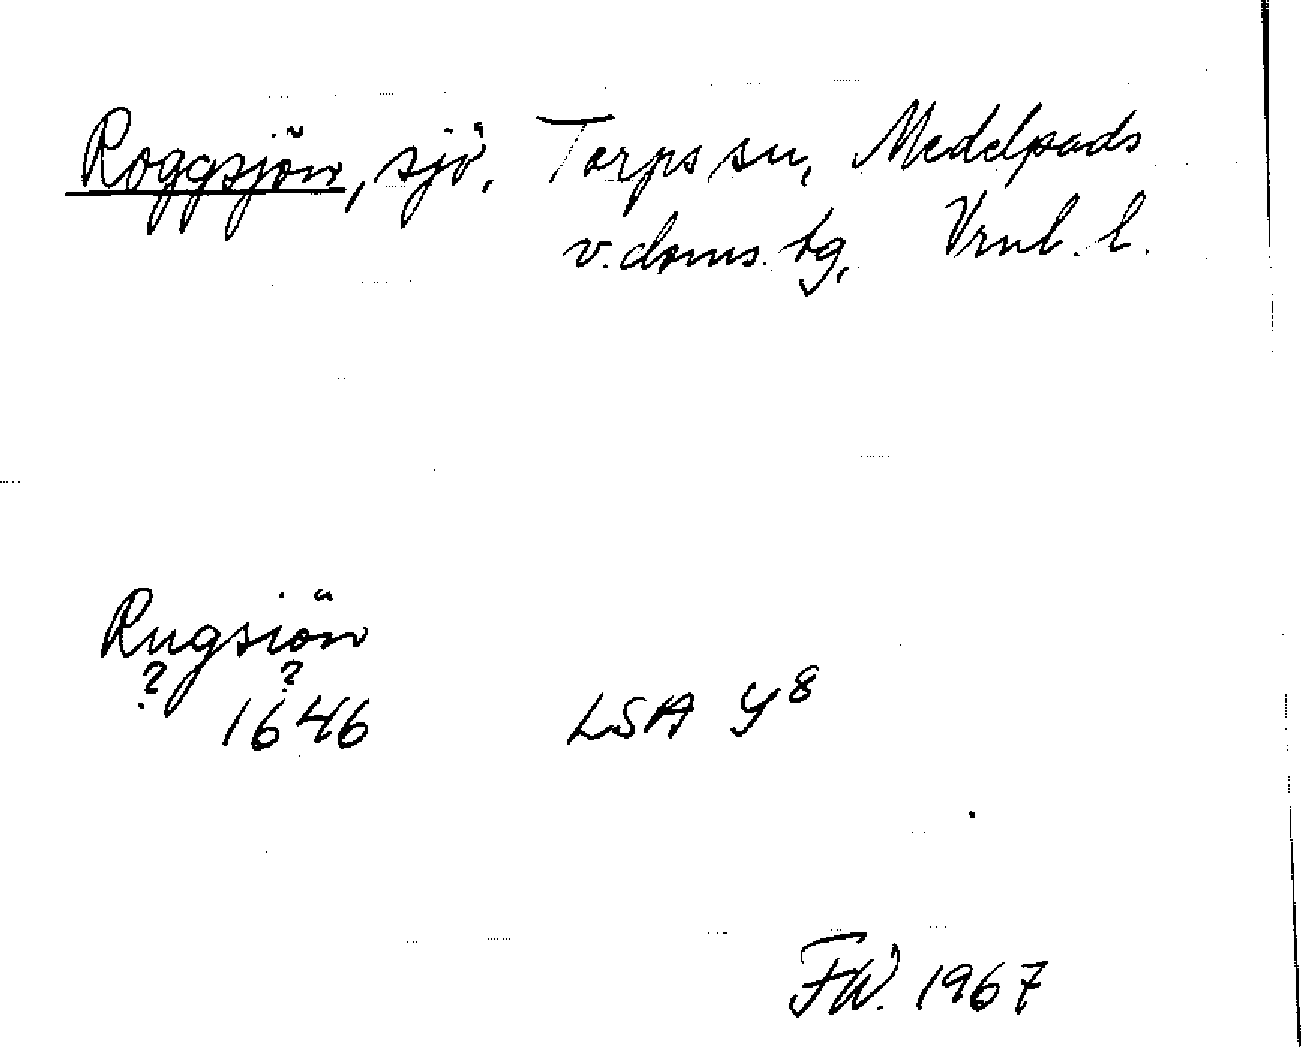 Roggsjön, sjö, Torps sn, Medelpads
v. doms. tg, Vrnl. l.
Rugsiön
? ?
1646 LSA Y8
FW. 1967